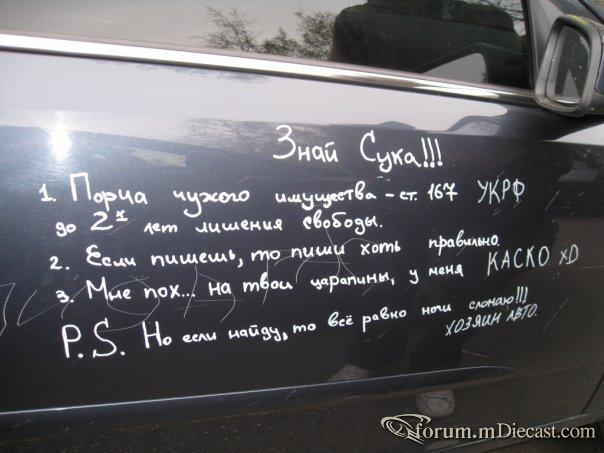 Знай Сука!!!
1. Порча чужого имущества - ст. 167 УКРФ
до 2х лет лишения свободы.
2. Если пишешь, то пиши хоть правильно.
3. Мне пох... на твои царапины, у меня КАСКО xD
P.S. Но если найду, то всё равно ночи сломаю!!!
ХОЗЯИН АВТО.
forum.mDiecast.com